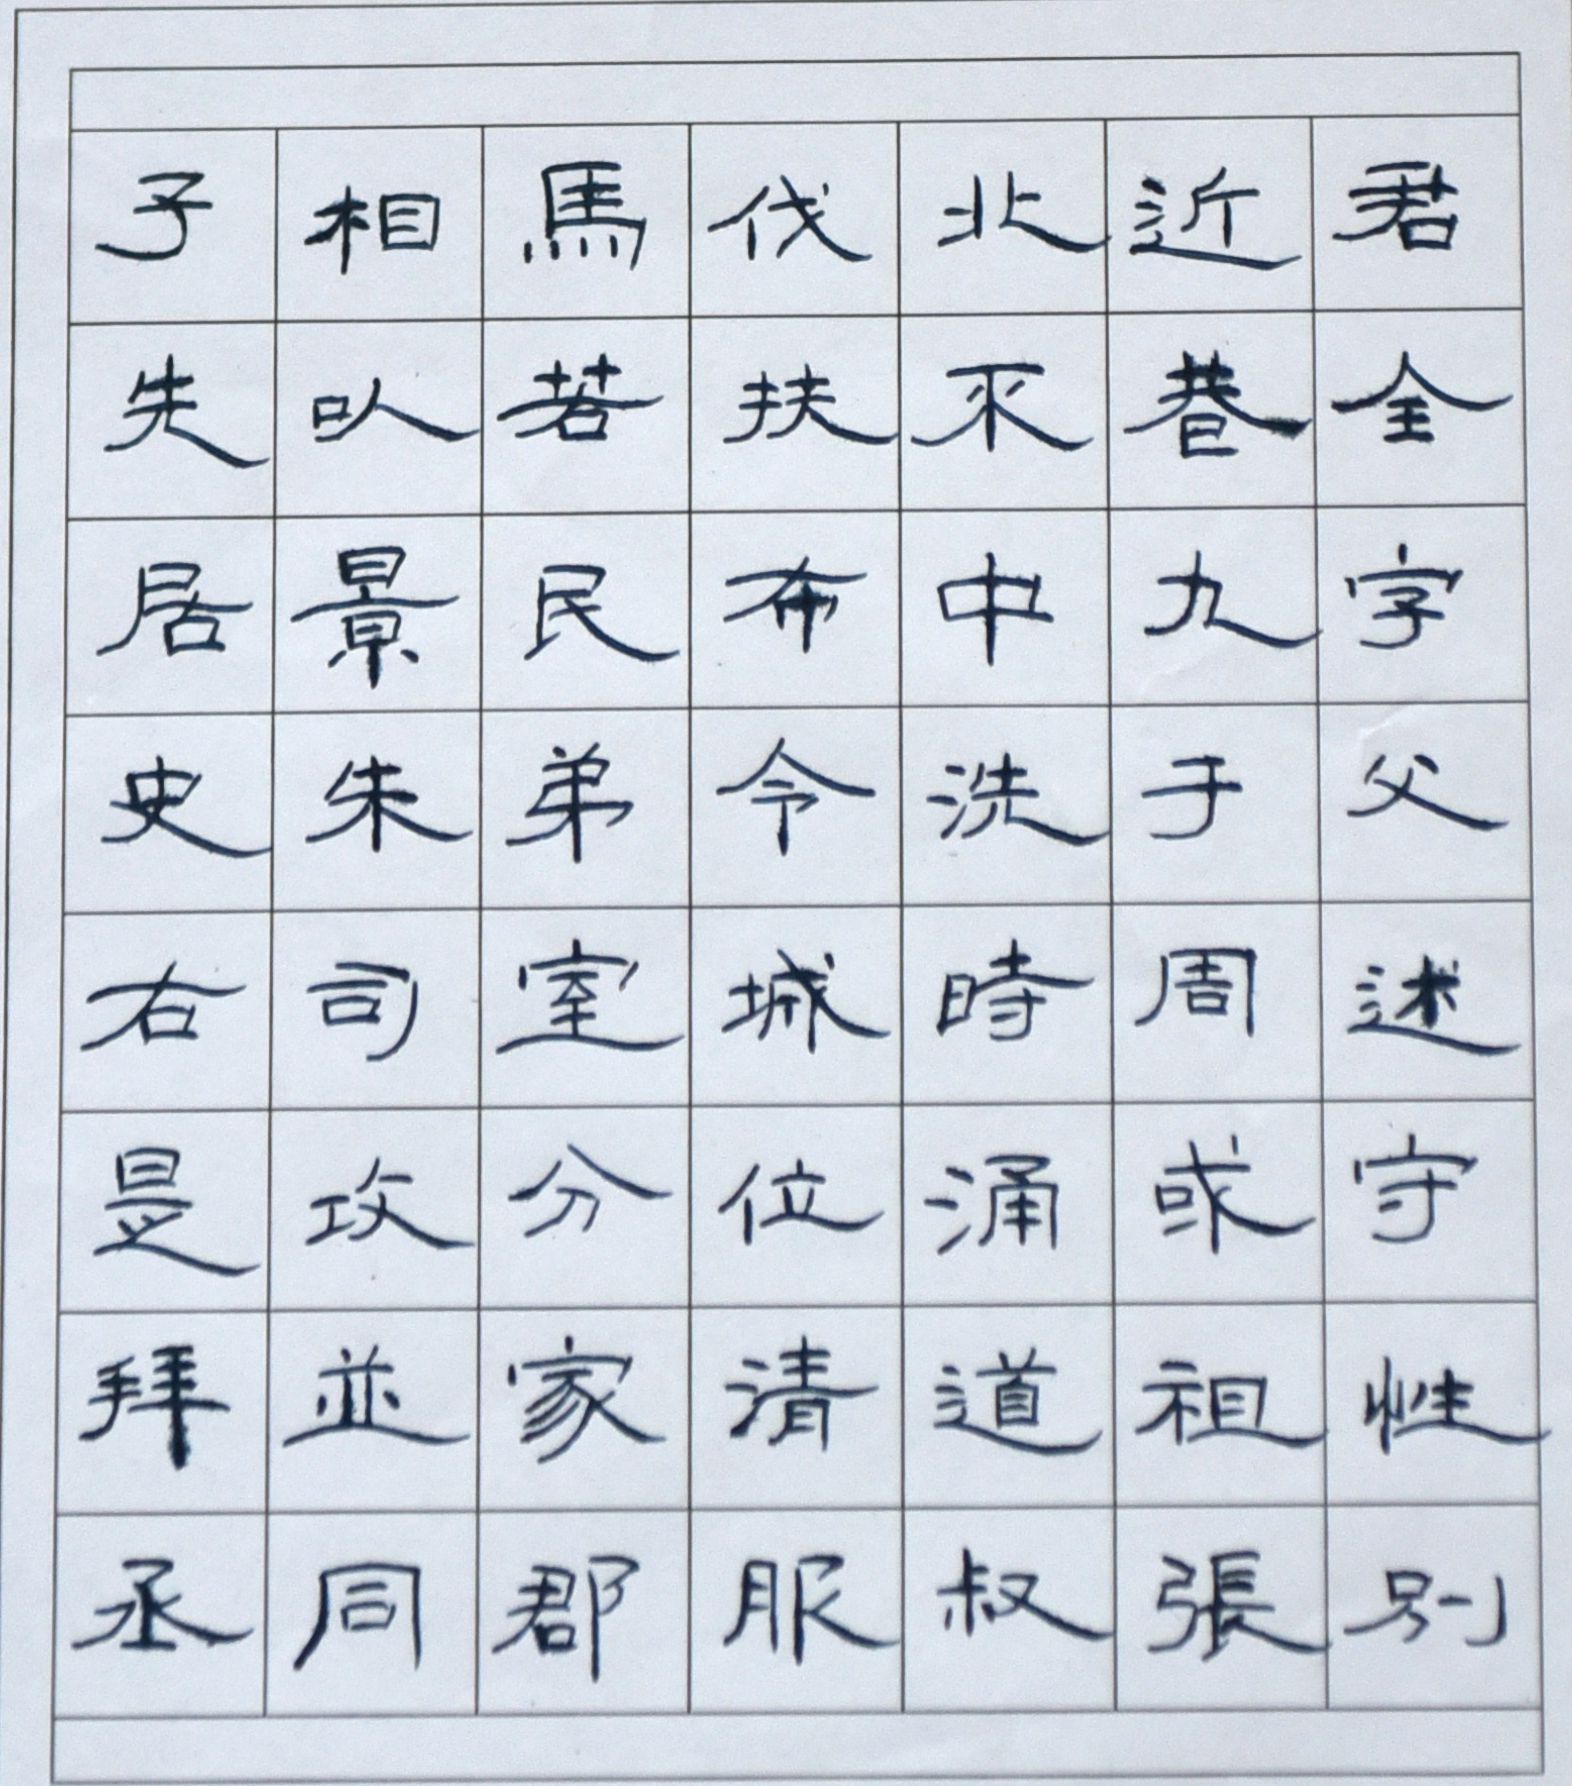 君全字父述守性别
近巷九于周或祖張
北不中洗時涌道叔
伐扶布令城位清服
馬若民弟室分家郡
相以景朱司攻並同
子先居史右是拜丞